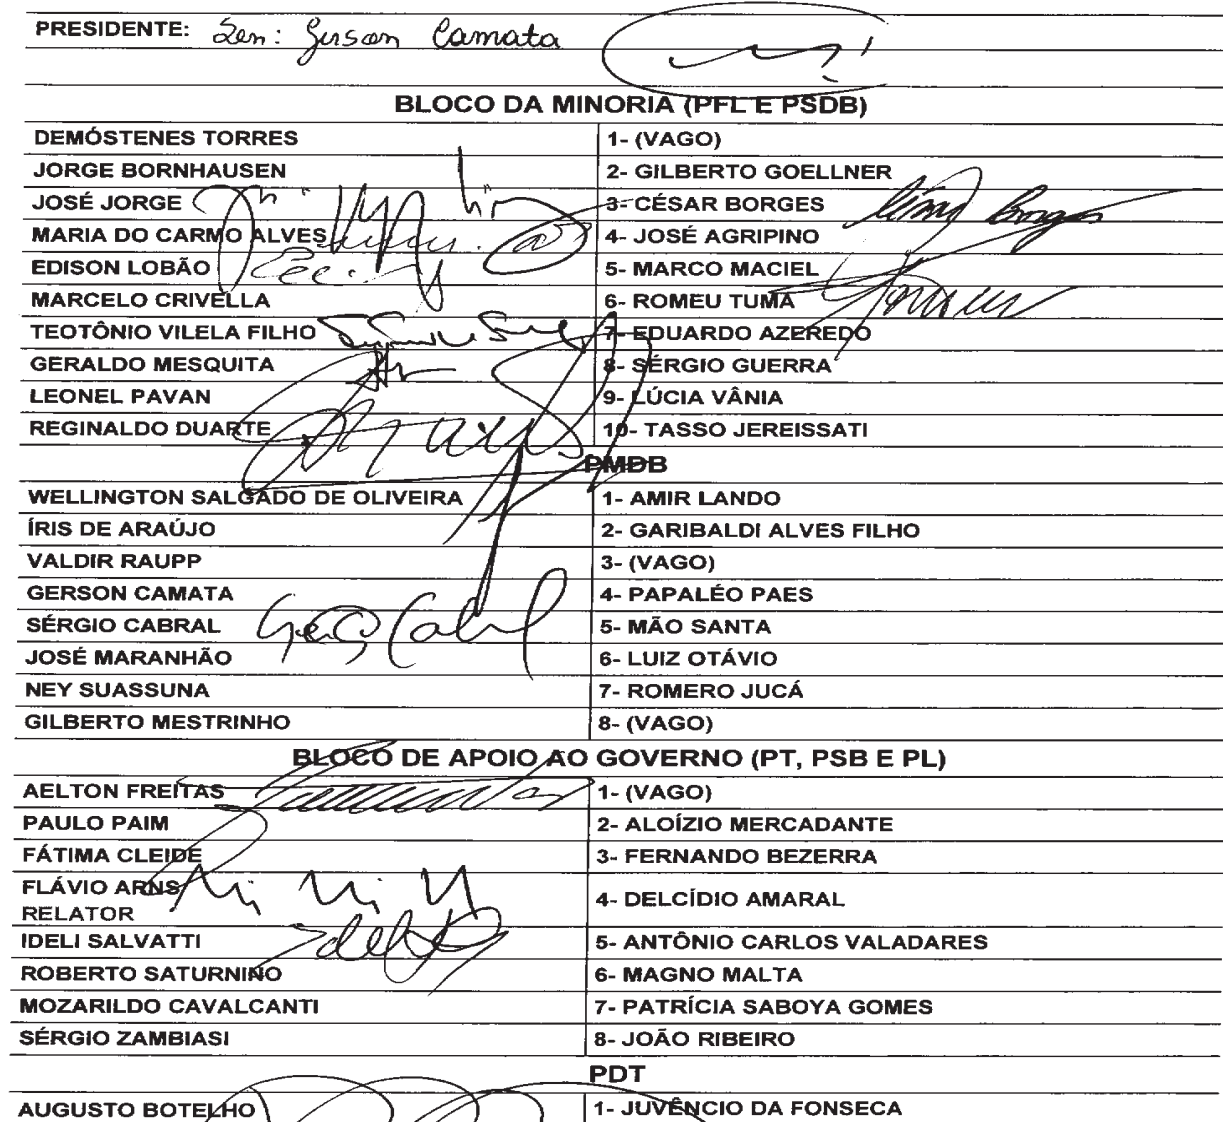 PRESIDENTE: Sen: Gerson Camata
BLOCO DA MINORIA (PFL E PSDB)
DEMÓSTENES TORRES 1- (VAGO)
JORGE BORNHAUSEN 2- GILBERTO GOELLNER
JOSÉ JORGE 3- CÉSAR BORGES
MARIA DO CARMO ALVES 4- JOSÉ AGRIPINO
EDISON LOBÃO 5- MARCO MACIEL
MARCELO CRIVELLA 6- ROMEU TUMA
TEOTÔNIO VILELA FILHO 7- EDUARDO AZEREDO
GERALDO MESQUITA 8- SÉRGIO GUERRA
LEONEL PAVAN 9- LÚCIA VÂNIA
REGINALDO DUARTE 10- TASSO JEREISSATI
PMDB
WELLINGTON SALGADO DE OLIVEIRA 1- AMIR LANDO
ÍRIS DE ARAÚJO 2- GARIBALDI ALVES FILHO
VALDIR RAUPP 3- (VAGO)
GERSON CAMATA 4- PAPALÉO PAES
SÉRGIO CABRAL 5- MÃO SANTA
JOSÉ MARANHÃO 6- LUIZ OTÁVIO
NEY SUASSUNA 7- ROMERO JUCÁ
GILBERTO MESTRINHO 8- (VAGO)
BLOCO DE APOIO AO GOVERNO (PT, PSB E PL)
AELTON FREITAS 1- (VAGO)
PAULO PAIM 2- ALOÍZIO MERCADANTE
FÁTIMA CLEIDE 3- FERNANDO BEZERRA
FLÁVIO ARNS 4- DELCÍDIO AMARAL
RELATOR
IDELI SALVATTI 5- ANTÔNIO CARLOS VALADARES
ROBERTO SATURNINO 6- MAGNO MALTA
MOZARILDO CAVALCANTI 7- PATRÍCIA SABOYA GOMES
SÉRGIO ZAMBIASI 8- JOÃO RIBEIRO
PDT
AUGUSTO BOTELHO 1- JUVÊNCIO DA FONSECA